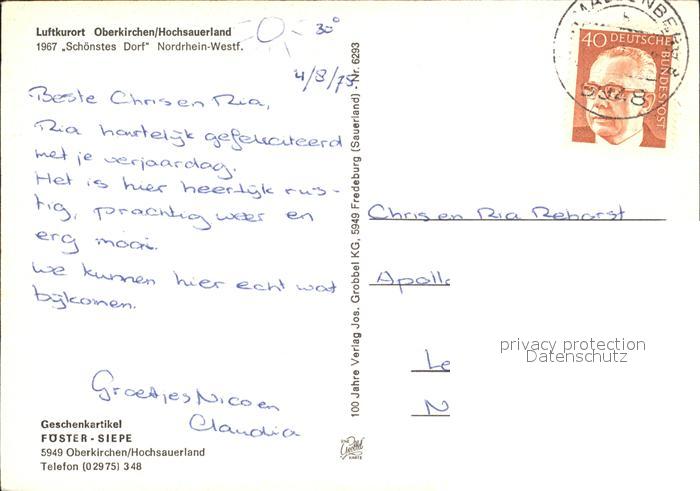 Luftkurort Oberkirchen/Hochsauerland
1967 „Schönstes Dorf" Nordrhein-Westf.
30°
4/8/75
Beste Chris en Ria,
Ria hartelijk gefeliciteerd
met je verjaardag.
Het is hier heerlijk rus-
tig, prachtig weer en
erg mooi.
We kunnen hier echt wat
bijkomen.
Groetjes Nico en
Claudia
Geschenkartikel
FÖSTER - SIEPE
5949 Oberkirchen/Hochsauerland
Telefon (02975) 348
100 Jahre Verlag Jos. Grobbel KG, 5949 Fredeburg (Sauerland) - Nr. 6293
40 DEUTSCHE BUNDESPOST
Chris en Ria Rehorst
Apoll
Le
N
privacy protection
Datenschutz